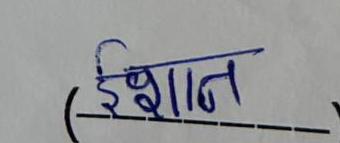 (ईशान)